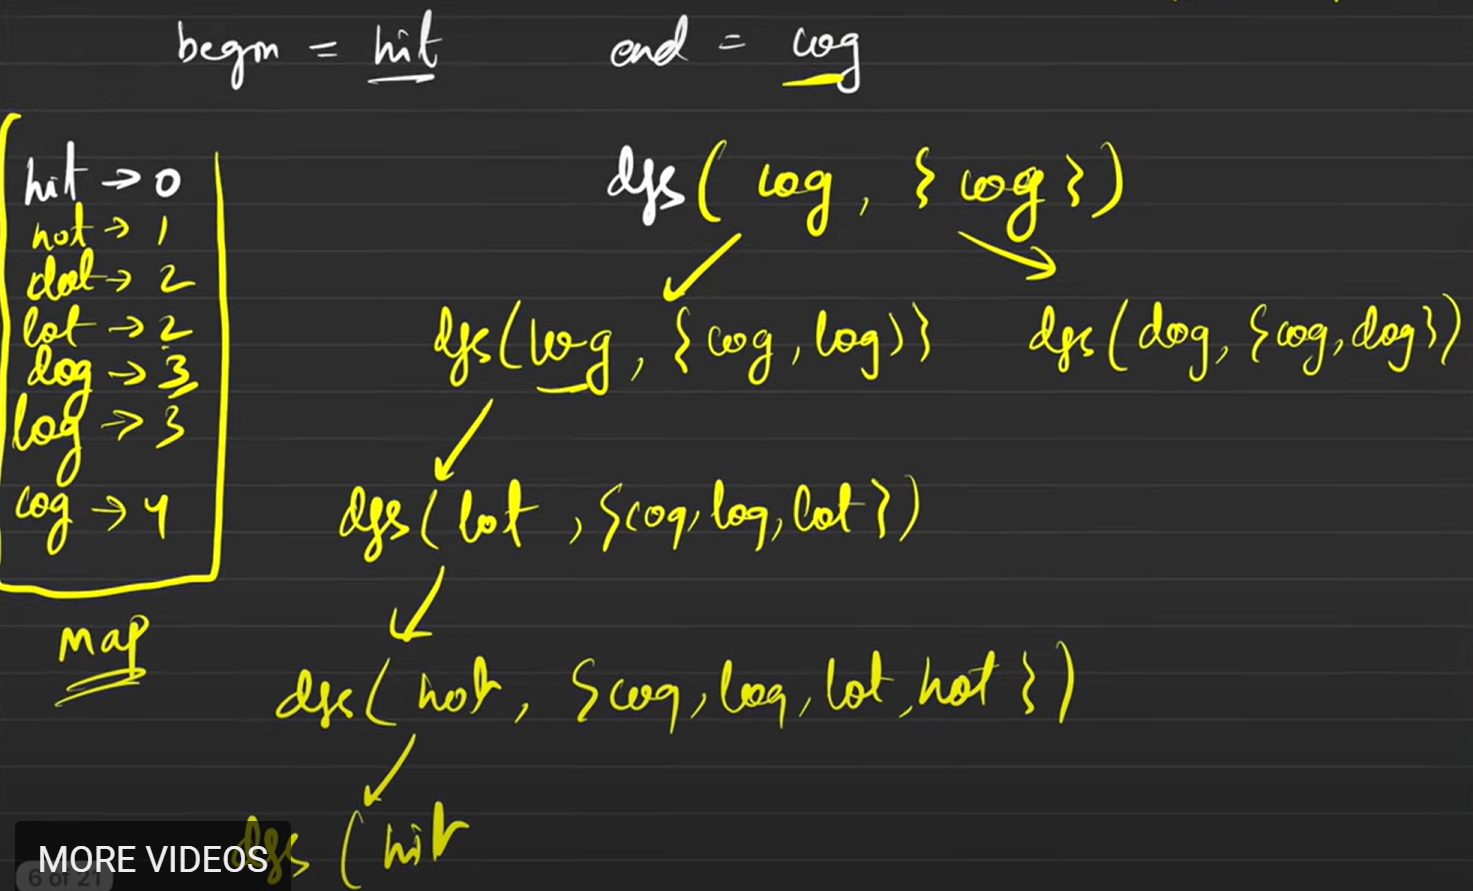 begin = hit end = cog
hit → 0
hot → 1
dot → 2
lot → 2
dog → 3
log → 3
cog → 4
Map
dfs ( cog, { cog } )
dfs ( log, { cog, log ) } dfs ( dog, { cog, dog } )
dfs ( lot, { cog, log, lot } )
dfs ( hot, { cog, log, lot, hot } )
dfs ( hit
MORE VIDEOS
6 of 21